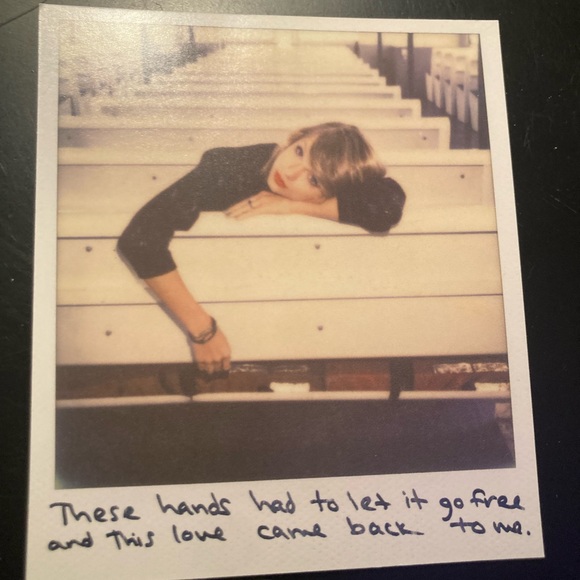 These hands had to let it go free
and this love came back to me.